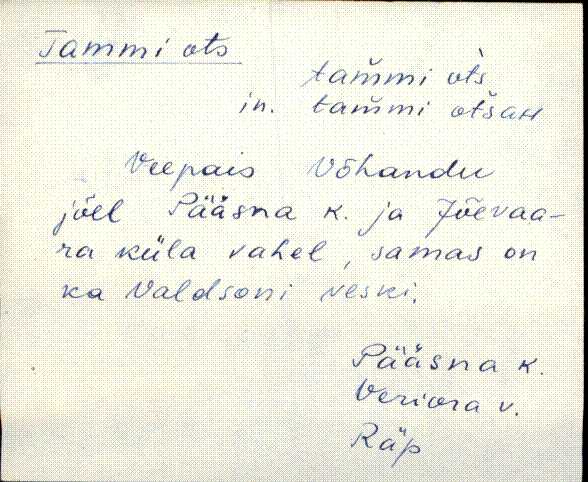 Tammi ots
tam̆mi ot̀s
in. tam̆mi ot̆san
Veepais Võhandu
jõel Pääsna k. ja Jõevaa-
ra küla vahel, samas on
ka Valdsoni veski.
Pääsna k.
Veriora v.
Räp